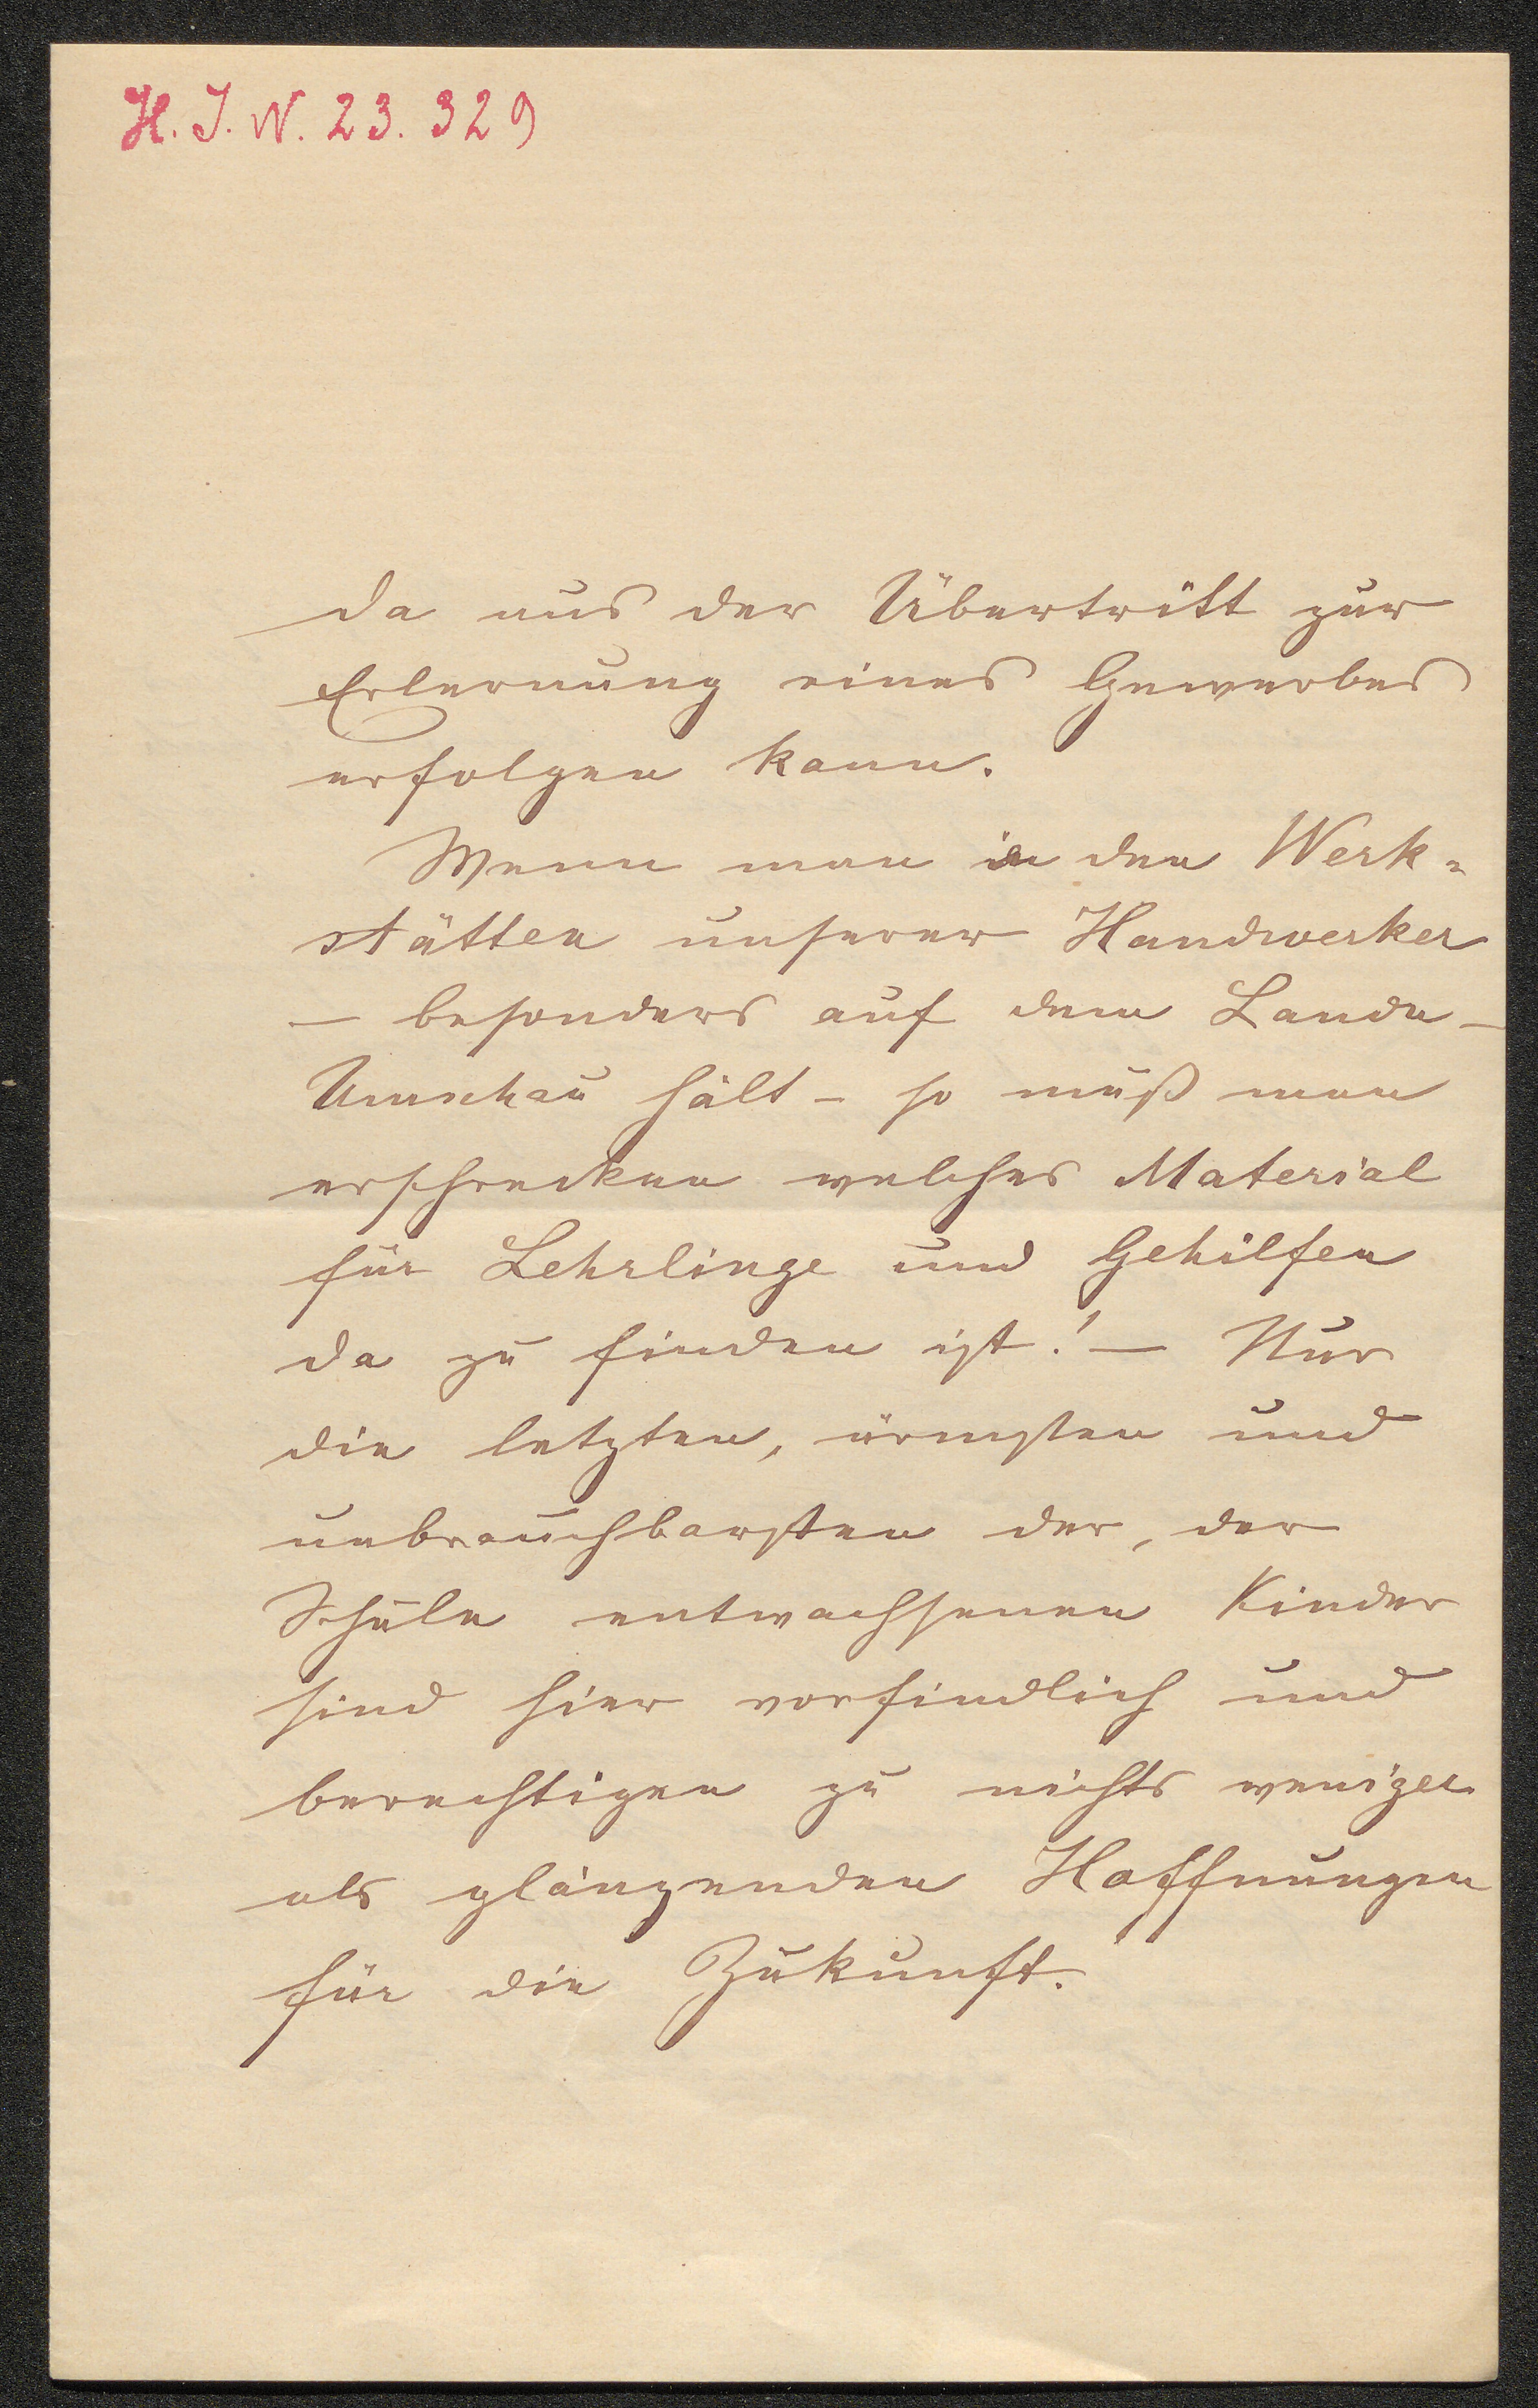 H. I. N. 23. 329
da aus der Übertritt zur
Erlernung eines Gewerbes
erfolgen kann.
Wenn man in den Werk=
stätten unserer Handwerker
— besonders auf dem Lande —
Umschau hält – so muß man
erschrecken welches Material
für Lehrlinge und Gehilfen
da zu finden ist! — Nur
die letzten, ärmsten und
unbrauchbarsten der, der
Schule entwachsenen Kinder
sind hier vorfindlich und
berechtigen zu nichts weniger
als glänzenden Hoffnungen
für die Zukunft.